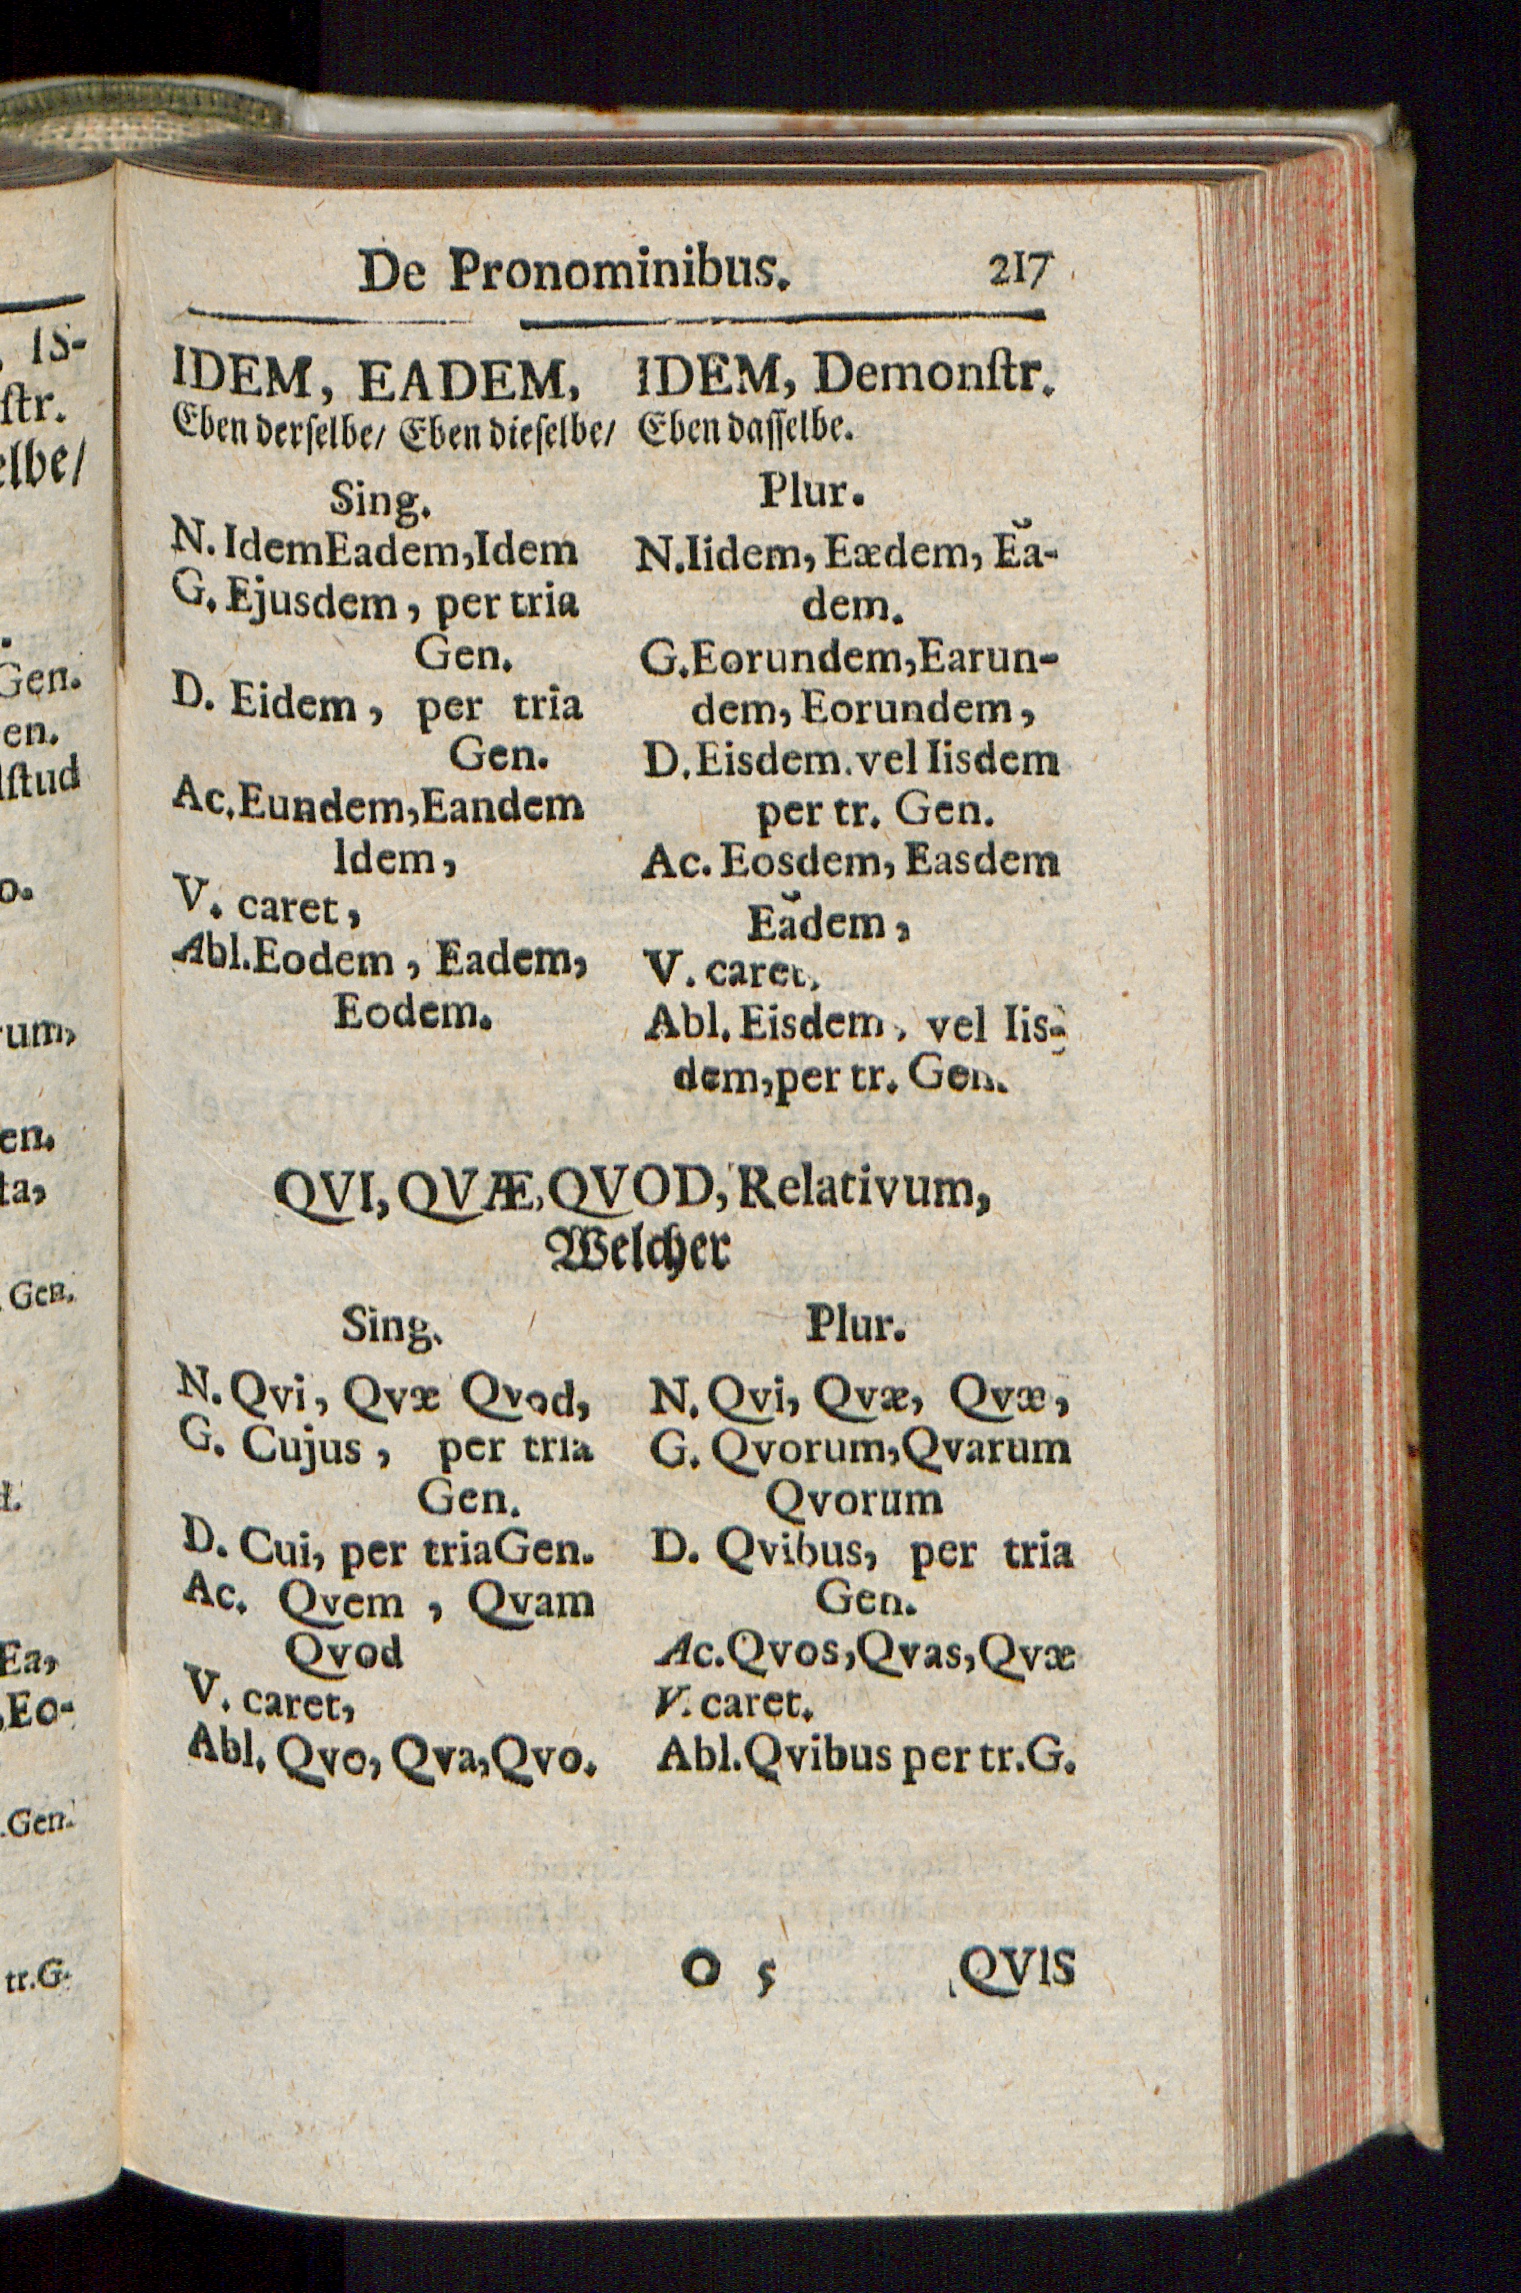 De Pronominibus. 217
IDEM, EADEM, IDEM, Demonſtr.
Eben derſelbe/ Eben dieſelbe/ Eben daſſelbe.
Sing.
N. IdemEadem,Idem
G. Ejusdem, per tria
Gen.
D. Eidem, per tria
Gen.
Ac. Eundem,Eandem
Idem,
V. caret,
Abl.Eodem, Eadem,
Eodem.
Plur.
N.Iidem, Eædem, Eă-
dem.
G.Eorundem,Earun-
dem, Eorundem,
D.Eisdem.vel Iisdem
per tr. Gen.
Ac. Eosdem, Easdem
Eădem,
V. caret,
Abl. Eisdem, vel Iis-
dem,per tr. Gen.
QVI, QVÆ, QVOD, Relativum,
Welcher
Sing.
N. Qvi, Qvæ Qvod,
G. Cujus, per tria
Gen.
D. Cui, per triaGen.
Ac. Qvem, Qvam
Qvod
V. caret,
Abl. Qvo, Qva,Qvo.
Plur.
N. Qvi, Qvæ, Qvæ,
G. Qvorum,Qvarum
Qvorum
D. Qvibus, per tria
Gen.
Ac.Qvos,Qvas,Qvæ
V. caret.
Abl.Qvibus per tr.G.
O 5 QVIS